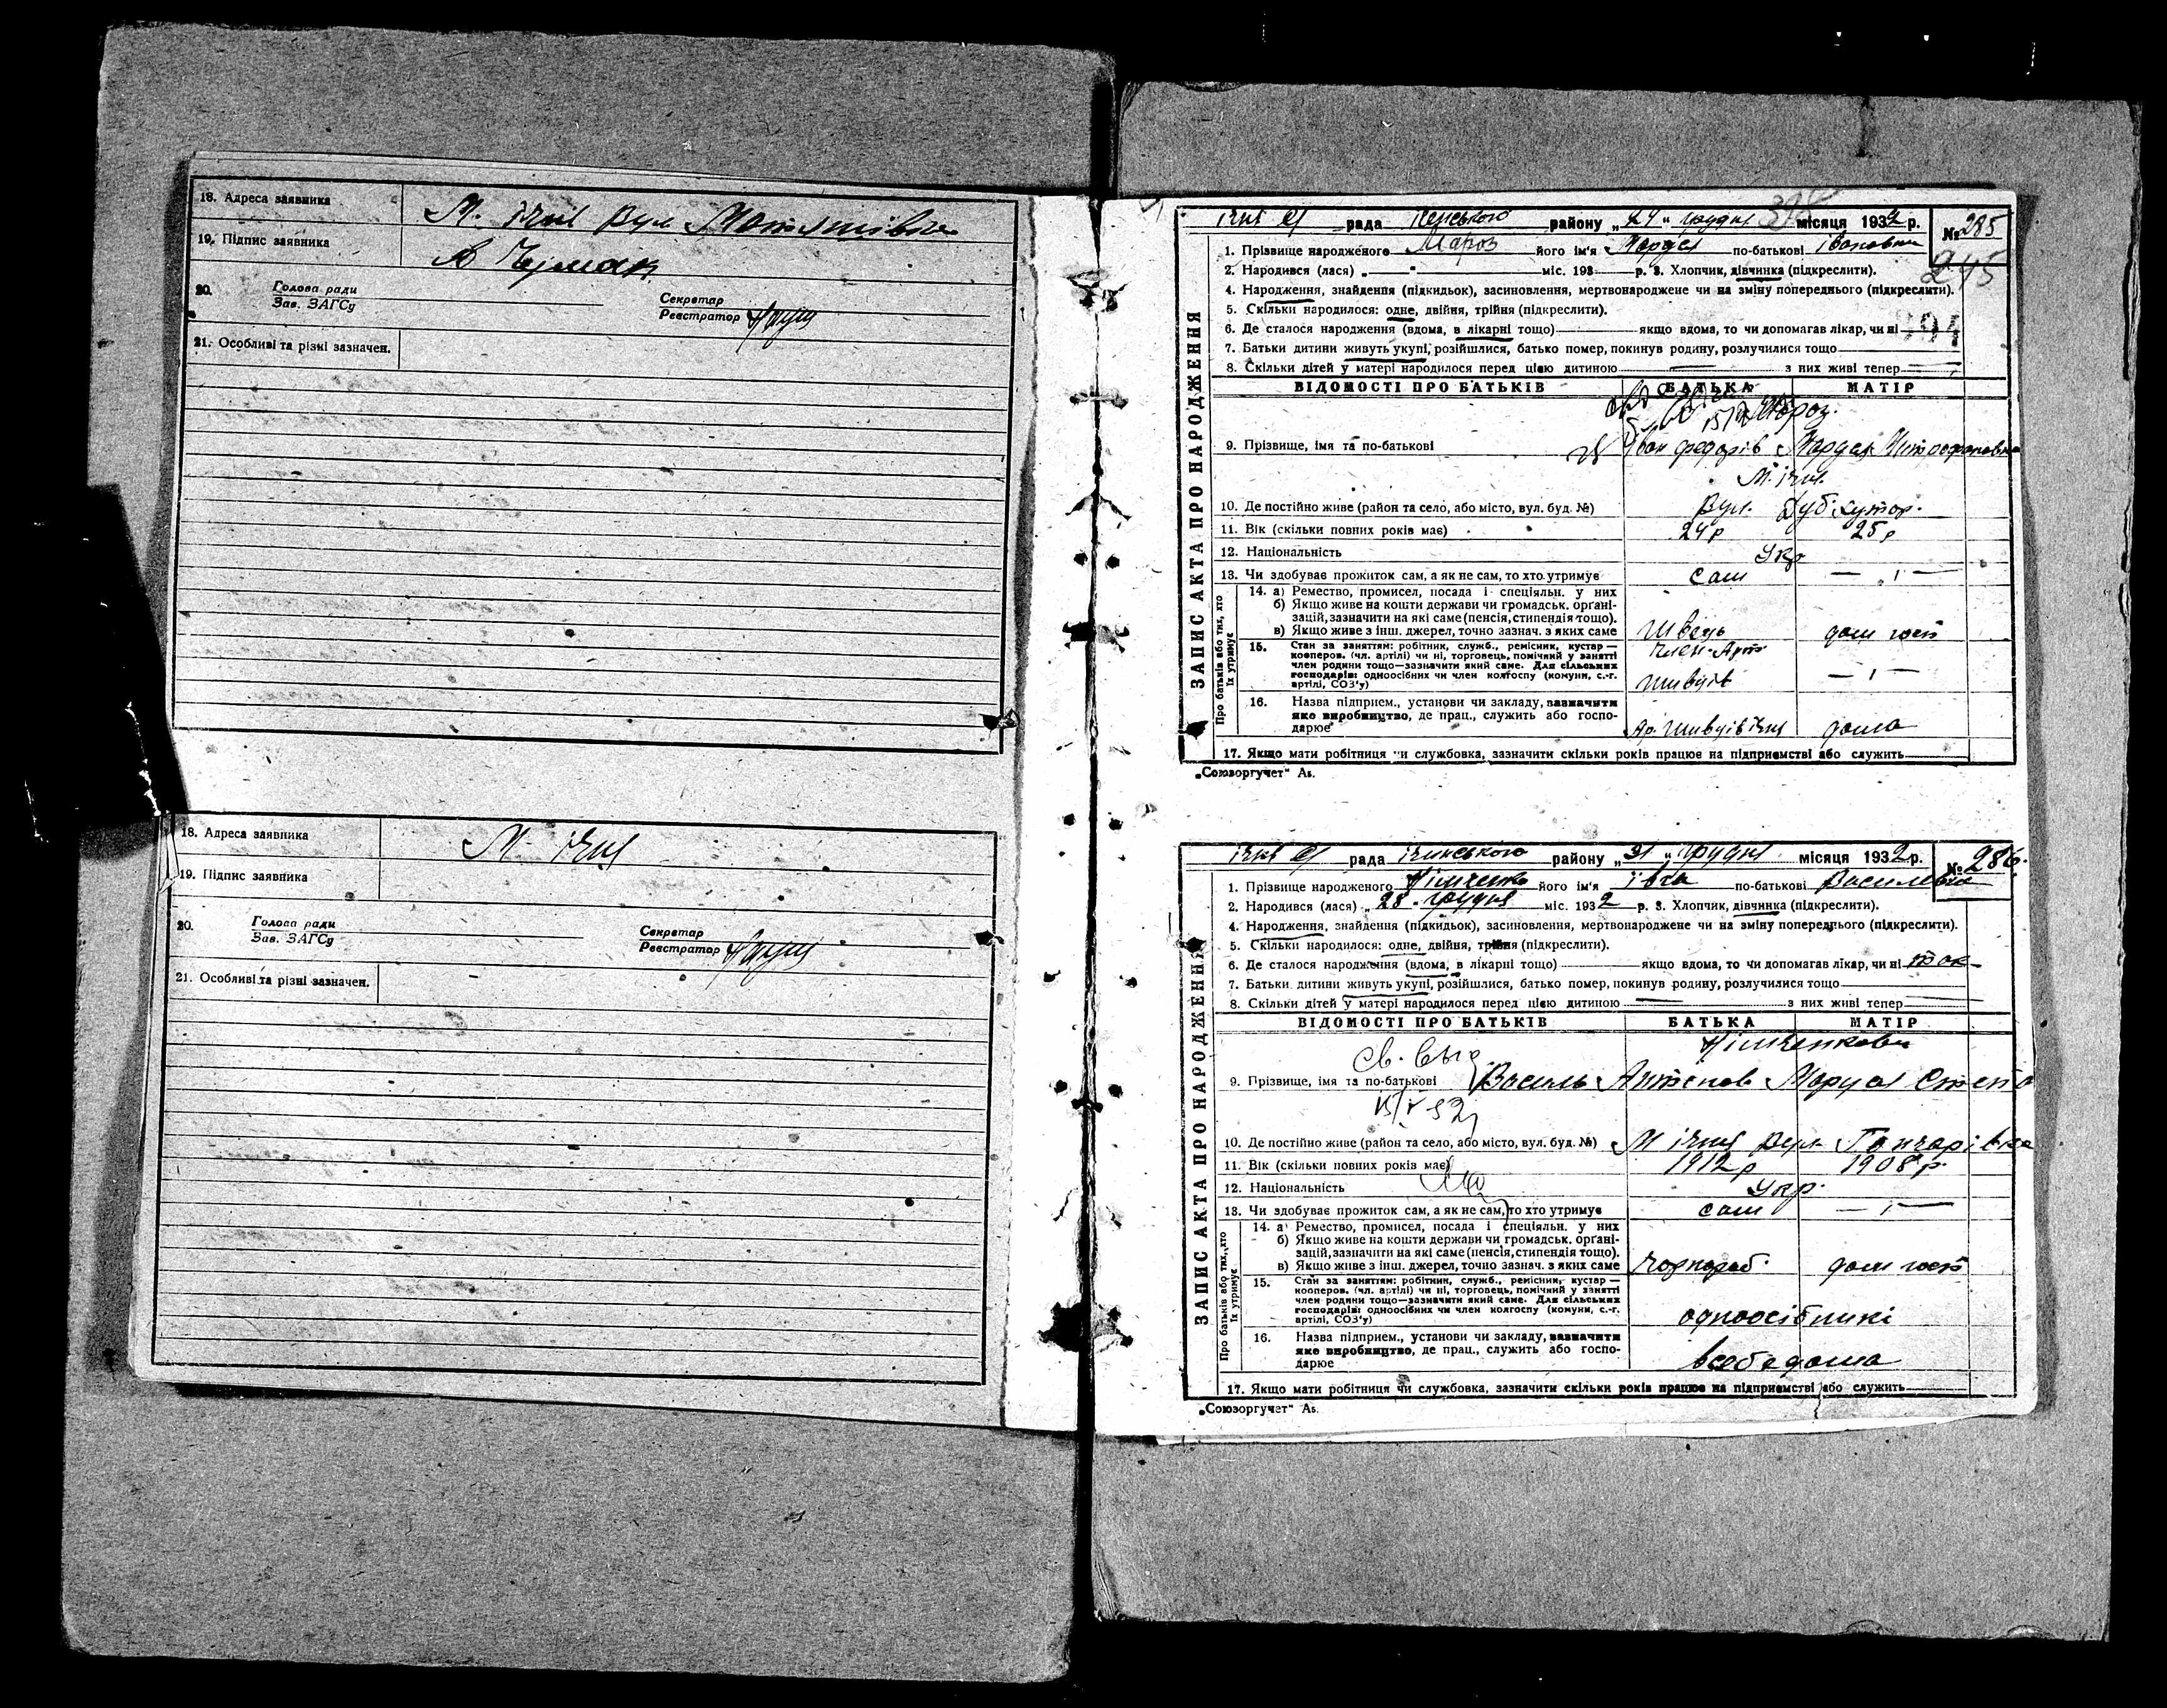 18. Адреса заявника М. Ічня Вул
19. Підпис заявника
20. Голова ради
Зав. ЗАГСу
Секретар
Реєстратор
21. Особливі та різні зазначен.
18. Адреса заявника М. Ічня
19. Підпис заявника
20. Голова ради
Зав. ЗАГСу
Секретар
Реєстратор
21. Особливі та різні зазначен.
ЗАПИС АКТА ПРО НАРОДЖЕННЯ
рада району „ " грудня місяця 1932 р. № 285
245
1. Прізвище народженого Мороз його ім'я Маруся по-батькові Івановна
2. Народився (лася) „ " міс. 193 р. 3. Хлопчик, дівчинка (підкреслити).
4. Народження, знайдення (підкидьок), засиновлення, мертвонароджене чи на зміну попереднього (підкреслити).
5. Скільки народилося: одне, двійня, трійня (підкреслити).
6. Де сталося народження (вдома, в лікарні тощо) якщо вдома, то чи допомагав лікар, чи ні
7. Батьки дитини живуть укупі, розійшлися, батько помер, покинув родину, розлучилися тощо
8. Скільки дітей у матері народилося перед цією дитиною з них живі тепер
ВІДОМОСТІ ПРО БАТЬКІВ БАТЬКА МАТІР
Мороз.
9. Прізвище, імя та по-батькові Іван Федорів Маруся Митрофановна
М. Ічня
10. Де постійно живе (район та село, або місто, вул. буд. №) Вул. Дуб. Хутор.
11. Вік (скільки повних років має) 24 р 25 р
12. Національність Укр
13. Чи здобуває прожиток сам, а як не сам, то хто утримує сам — „ —
Про батьків або тих, хто їх утримує
14. а) Ремество, промисел, посада і спеціяльн. у них
б) Якщо живе на кошти держави чи громадськ. органі-
зацій, зазначити на які саме (пенсія, стипендія тощо).
в) Якщо живе з інш. джерел, точно зазнач. з яких саме швець дом госп
15. Стан за заняттям: робітник, служб., ремісник, кустар — член. Арт
кооперов. (чл. артілі) чи ні, торговець, помічний у занятті
член родини тощо—зазначити який саме. Для сільських
господарів: одноосібних чи член колгоспу (комуни, с.-г. швців — „ —
артілі, СОЗ'у)
16. Назва підприєм., установи чи закладу, зазначити
яке виробництво, де прац., служить або госпо-
дарює Ар. швців Ічня дома
17. Якщо мати робітниця чи службовка, зазначити скільки років працює на підприємстві або служить
„Союзоргучет" А5.
ЗАПИС АКТА ПРО НАРОДЖЕННЯ
рада Ічинського району „31" грудня місяця 1932 р. № 286.
1. Прізвище народженого Німченко його ім'я Івга по-батькові Василевна
2. Народився (лася) „28" грудня міс. 1932 р. 3. Хлопчик, дівчинка (підкреслити).
4. Народження, знайдення (підкидьок), засиновлення, мертвонароджене чи на зміну попереднього (підкреслити).
5. Скільки народилося: одне, двійня, трійня (підкреслити).
6. Де сталося народження (вдома, в лікарні тощо) якщо вдома, то чи допомагав лікар, чи ні так
7. Батьки дитини живуть укупі, розійшлися, батько помер, покинув родину, розлучилися тощо
8. Скільки дітей у матері народилося перед цією дитиною з них живі тепер
ВІДОМОСТІ ПРО БАТЬКІВ БАТЬКА МАТІР
Німченкови
9. Прізвище, імя та по-батькові Василь Антонов Маруся Степа
10. Де постійно живе (район та село, або місто, вул. буд. №) М Ічня Вул. Гончарівка
11. Вік (скільки повних років має) 1912 р 1908 р.
12. Національність Укр.
13. Чи здобуває прожиток сам, а як не сам, то хто утримує сам — „ —
Про батьків або тих, хто їх утримує
14. а) Ремество, промисел, посада і спеціяльн. у них
б) Якщо живе на кошти держави чи громадськ. органі-
зацій, зазначити на які саме (пенсія, стипендія тощо).
в) Якщо живе з інш. джерел, точно зазнач. з яких саме чорнороб. дом госп
15. Стан за заняттям: робітник, служб., ремісник, кустар —
кооперов. (чл. артілі) чи ні, торговець, помічний у занятті
член родини тощо—зазначити який саме. Для сільських
господарів: одноосібних чи член колгоспу (комуни, с.-г. одноосібники
артілі, СОЗ'у)
16. Назва підприєм., установи чи закладу, зазначити
яке виробництво, де прац., служить або госпо-
дарює в себе дома
17. Якщо мати робітниця чи службовка, зазначити скільки років працює на підприємстві або служить
„Союзоргучет" А5.